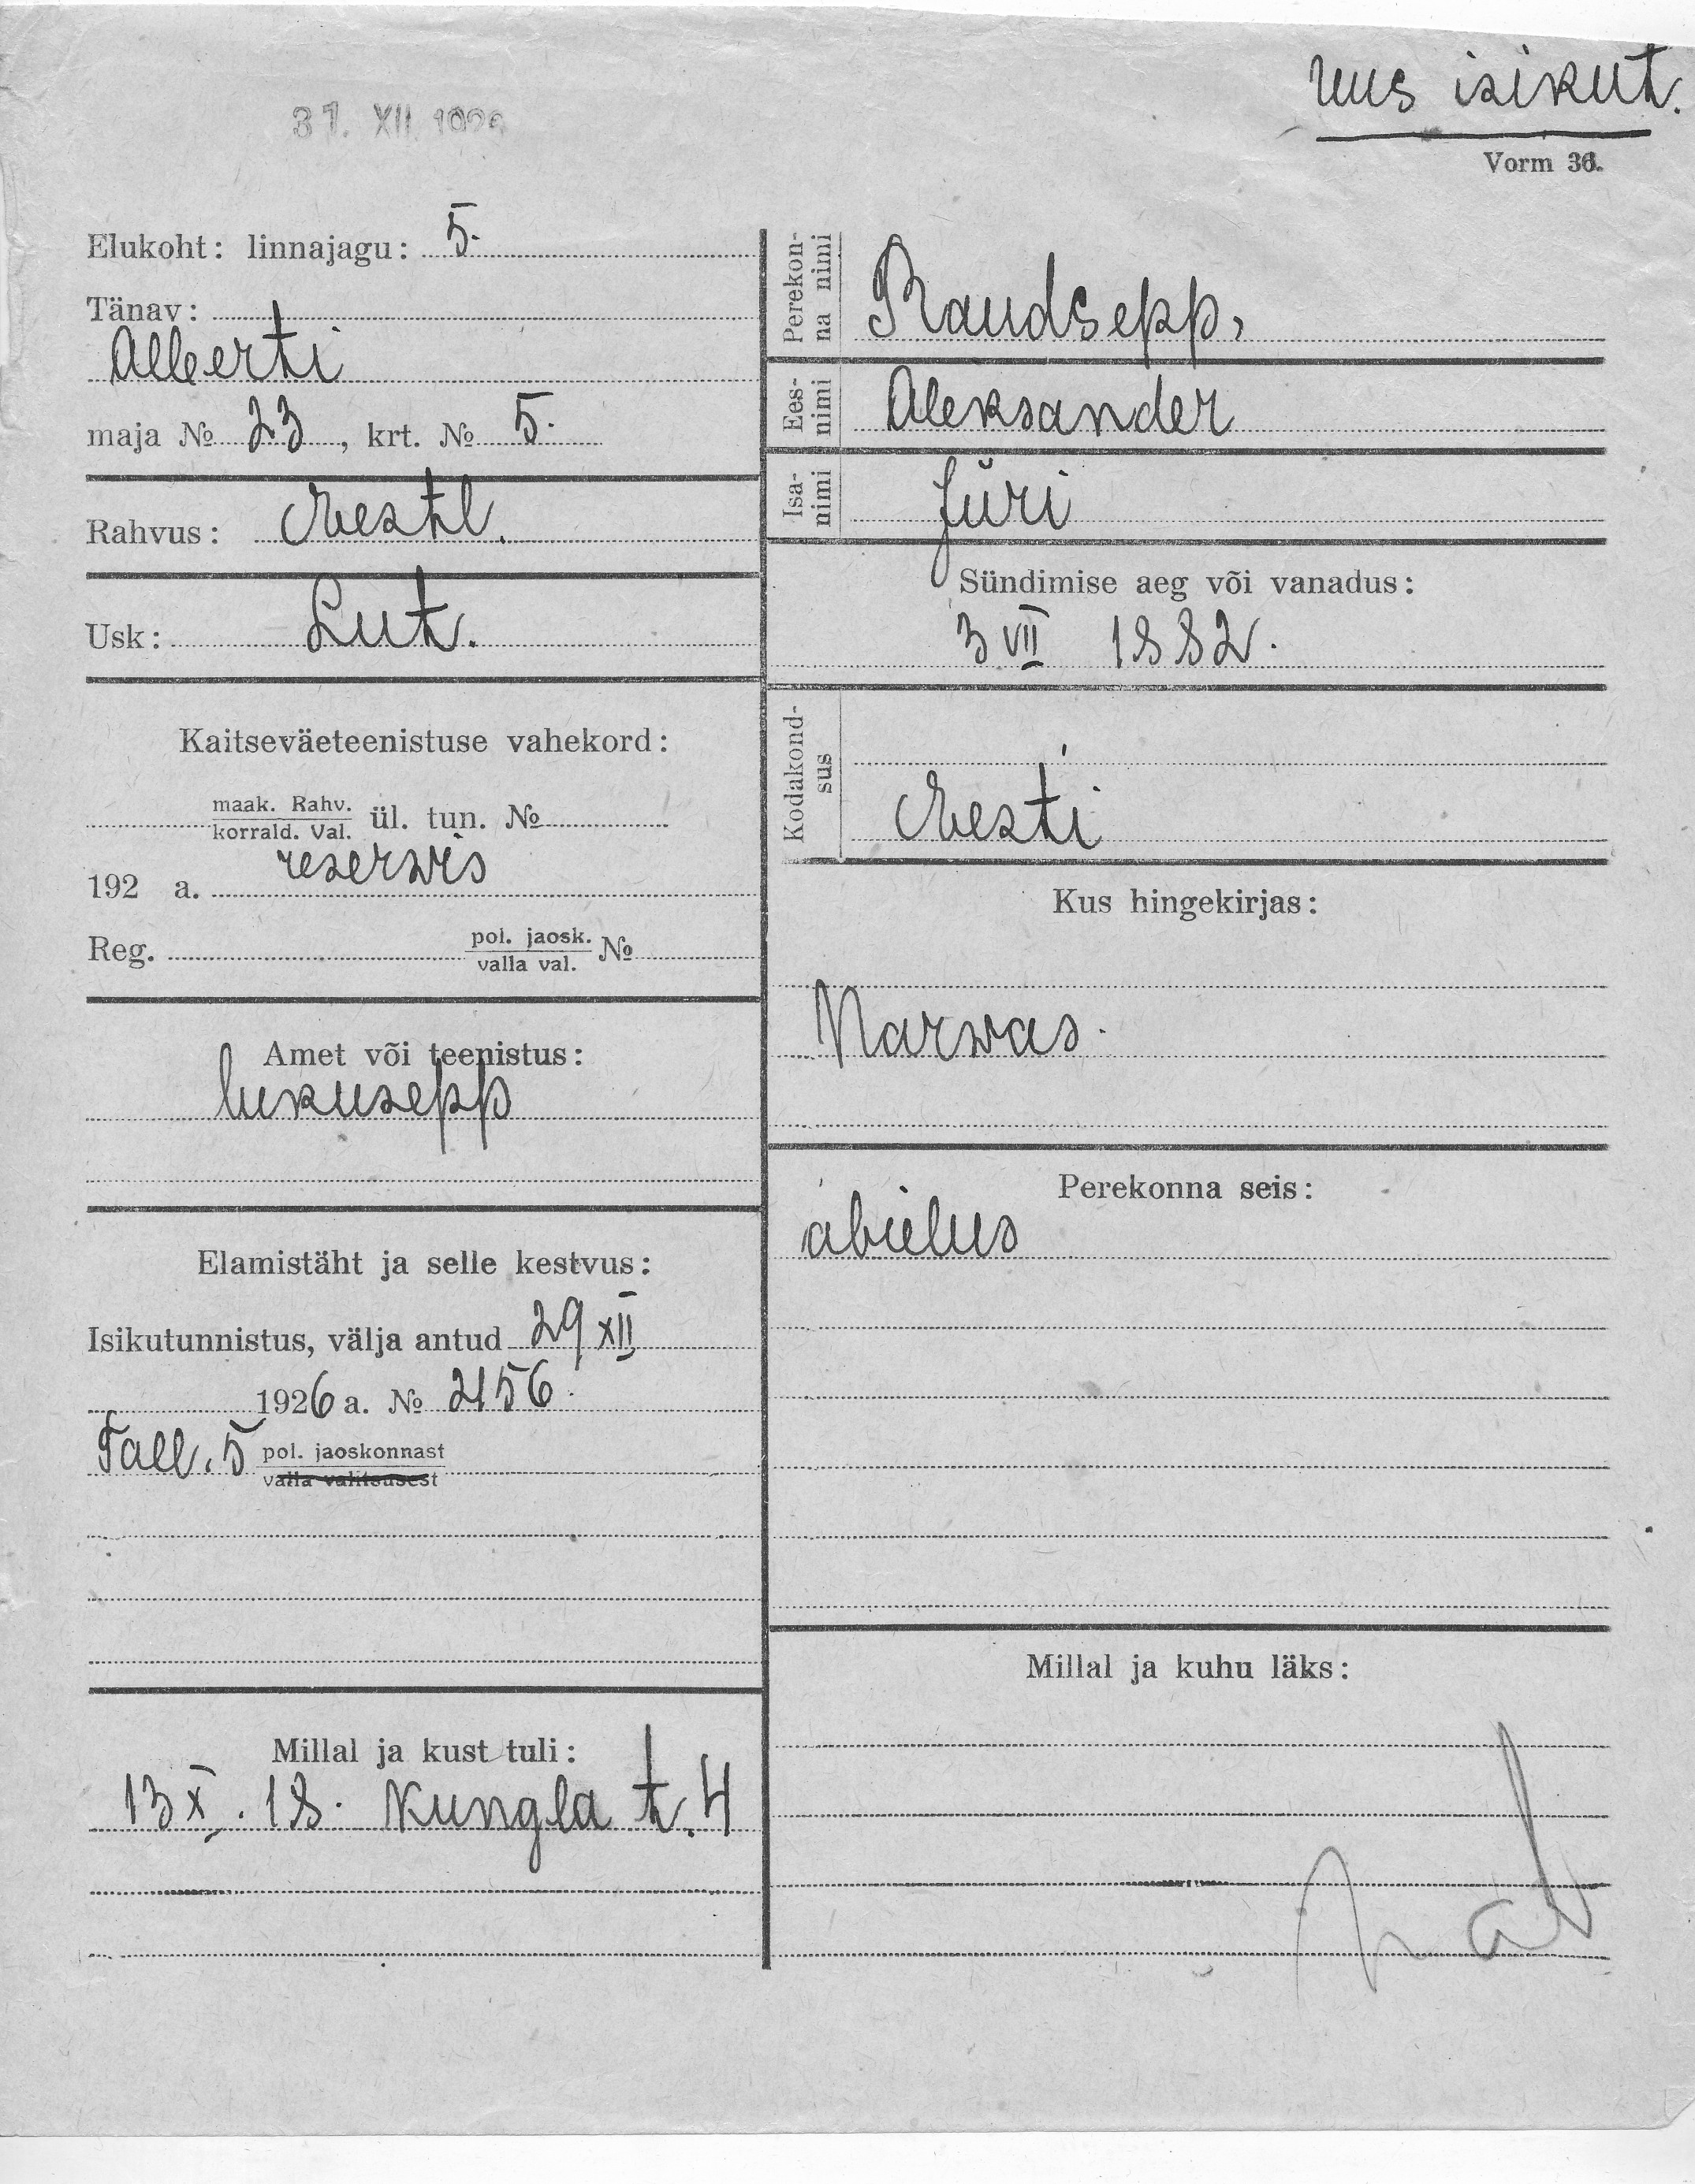 uus isikut.
31. XII 1926
Vorm 36.
Elukoht: linnajagu: 5.
Tänav:
Alberti
maja № 23, krt. № 5.
Rahvus: Eestl.
Usk: Lut.
Kaitseväeteenistuse vahekord:
maak. Rahv.
korrald. Val. ül. tun. №
192 a. reserwis
Reg. pol. jaosk.
valla val. №
Amet või teenistus:
lukusepp
Elamistäht ja selle kestvus:
Isikutunnistus, välja antud 29 XII
1926 a. № 2156.
Tall. 5 pol. jaoskonnast
valla valitsusest
Millal ja kust tuli:
13 X. 18. Kungla t. 4
Perekon-
na nimi
Raudsepp,
Ees-
nimi
Aleksander
Isa-
nimi
Jüri
Sündimise aeg või vanadus:
3 VII 1882.
Kodakond-
sus
Eesti
Kus hingekirjas:
Narwas.
Perekonna seis:
abielus
Millal ja kuhu läks: